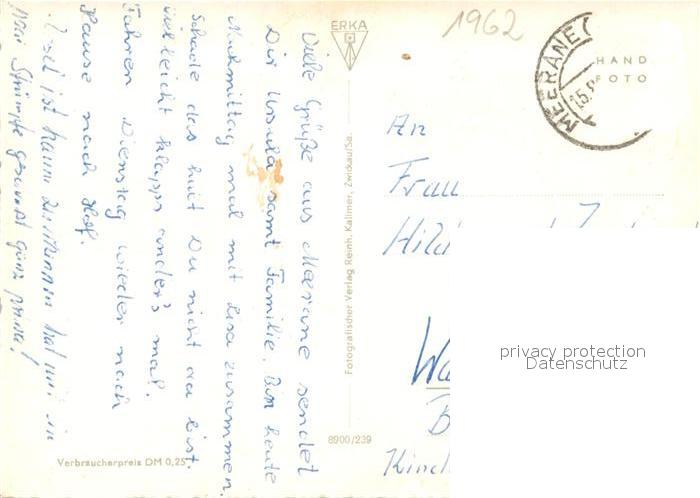 1962
ERKA
HAND
FOTO
MEERANE
15.
Viele Grüße aus Meerane sendet
Dir Ursula samt Familie. Bin heute
Nachmittag mal mit Lisa zusammen.
Schade das heut Du nicht da bist.
vielleicht klappt anders mal.
Fahren Dienstag wieder nach
Hause nach Hof.
ist kaum hat mir in
Strümpfe ganz prima!
An
Frau
Fotografischer Verlag Reinh. Kallmer, Zwickau/Sa.
8900/239
Verbraucherpreis DM 0,25
privacy protection
Datenschutz